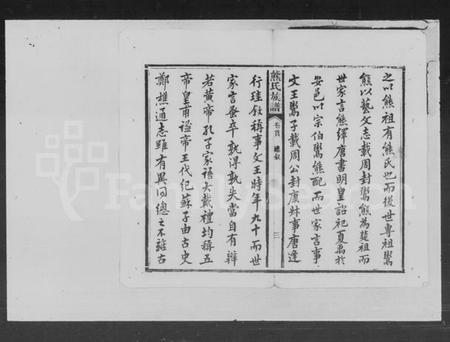 之以熊祖有熊氏也而後世專祖鬻
熊以藝文志載周封鬻熊為楚祖而
世家言熊繹唐書明皇詔祀夏禹於
安邑以宗伯鬻熊配而世家言事
文王鬻子載周公封康叔事唐逢
行珪敘稱事文王時年九十而世
家言蚤卒孰得孰失當自有辨
若黃帝孔子家語大戴禮均稱五
帝皇甫謐帝王代紀蘇子由古史
鄭樵通志雖有異同總之不離古
熊氏族譜
卷首
總敘
三
FamilySearch